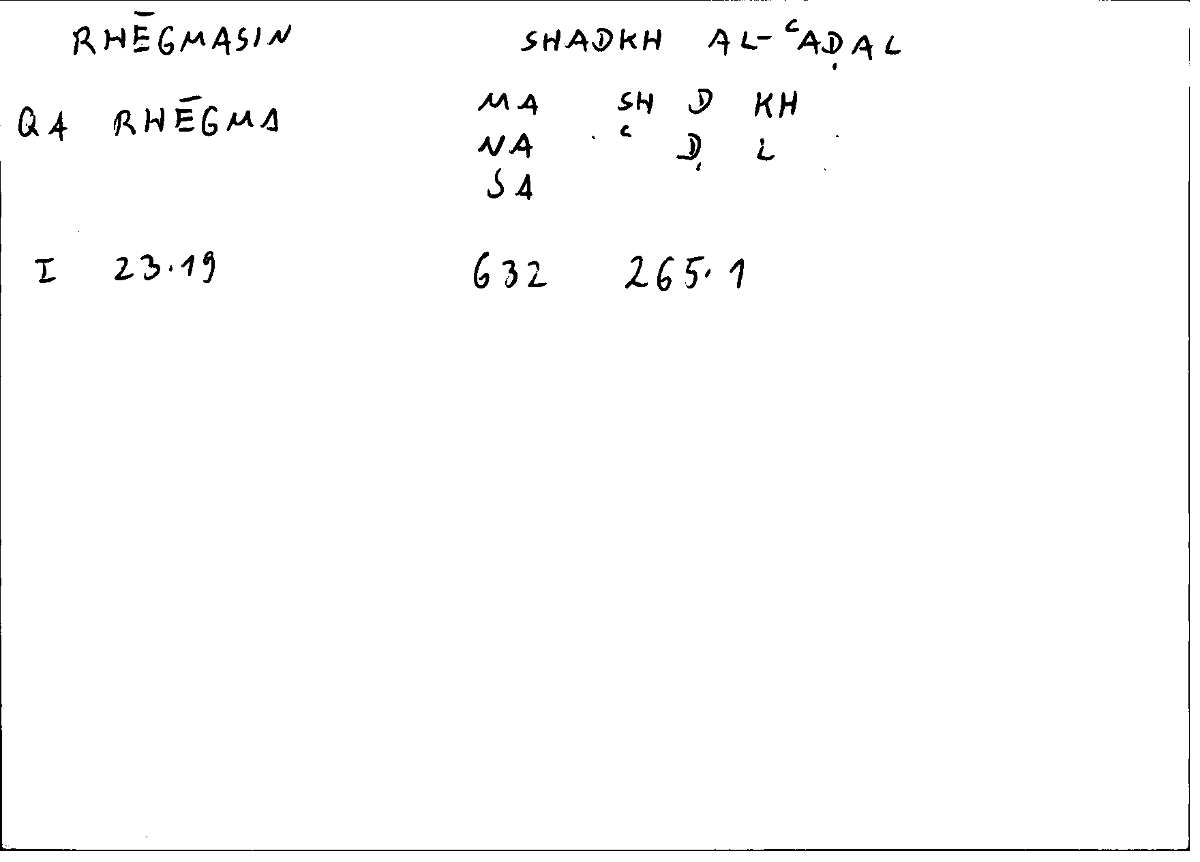 RHĒGMASIN SHADKH AL-ʿAḌAL
QA RHĒGMA MA SH D KH
NA ʿ Ḍ L
SA
I 23.19 632 265.1